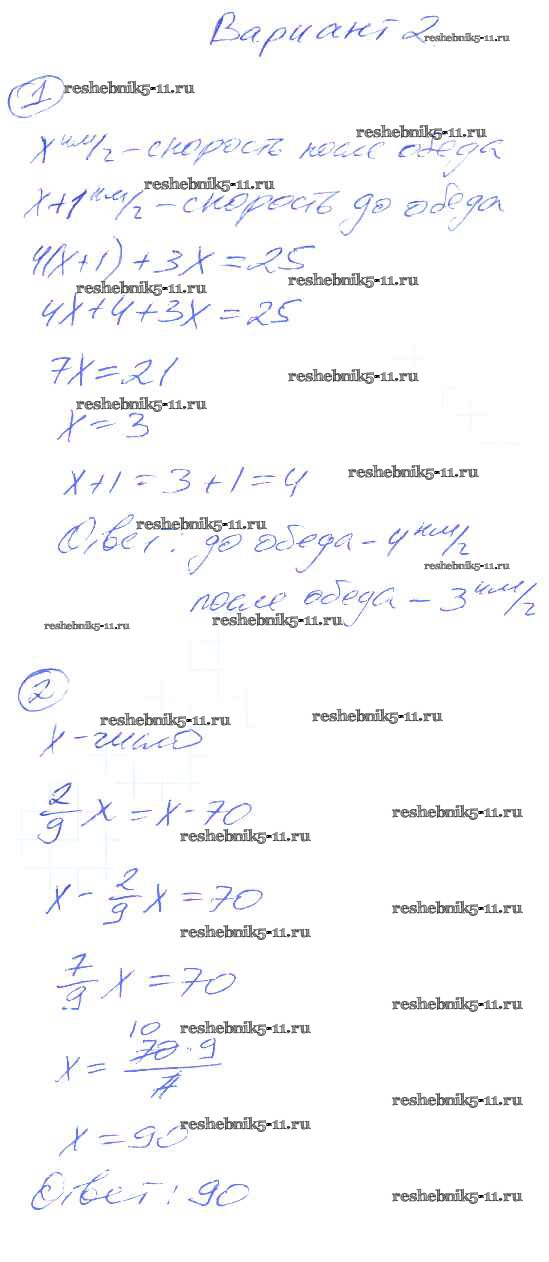 Вариант 2
reshebnik5-11.ru
1 reshebnik5-11.ru
reshebnik5-11.ru
x км/г - скорость после обеда
reshebnik5-11.ru
x+1 км/г - скорость до обеда
4(x+1)+3x=25
reshebnik5-11.ru reshebnik5-11.ru
4x+4+3x=25
7x=21 reshebnik5-11.ru
reshebnik5-11.ru
x=3
x+1=3+1=4 reshebnik5-11.ru
reshebnik5-11.ru
Ответ: до обеда - 4 км/г
reshebnik5-11.ru
после обеда - 3 км/г
reshebnik5-11.ru reshebnik5-11.ru
2
reshebnik5-11.ru reshebnik5-11.ru
x - число
2/9 x = x - 70 reshebnik5-11.ru
reshebnik5-11.ru
x - 2/9 x = 70 reshebnik5-11.ru
reshebnik5-11.ru
7/9 x = 70 reshebnik5-11.ru
10 reshebnik5-11.ru
x = 70·9/7 reshebnik5-11.ru
x = 90 reshebnik5-11.ru
Ответ: 90 reshebnik5-11.ru